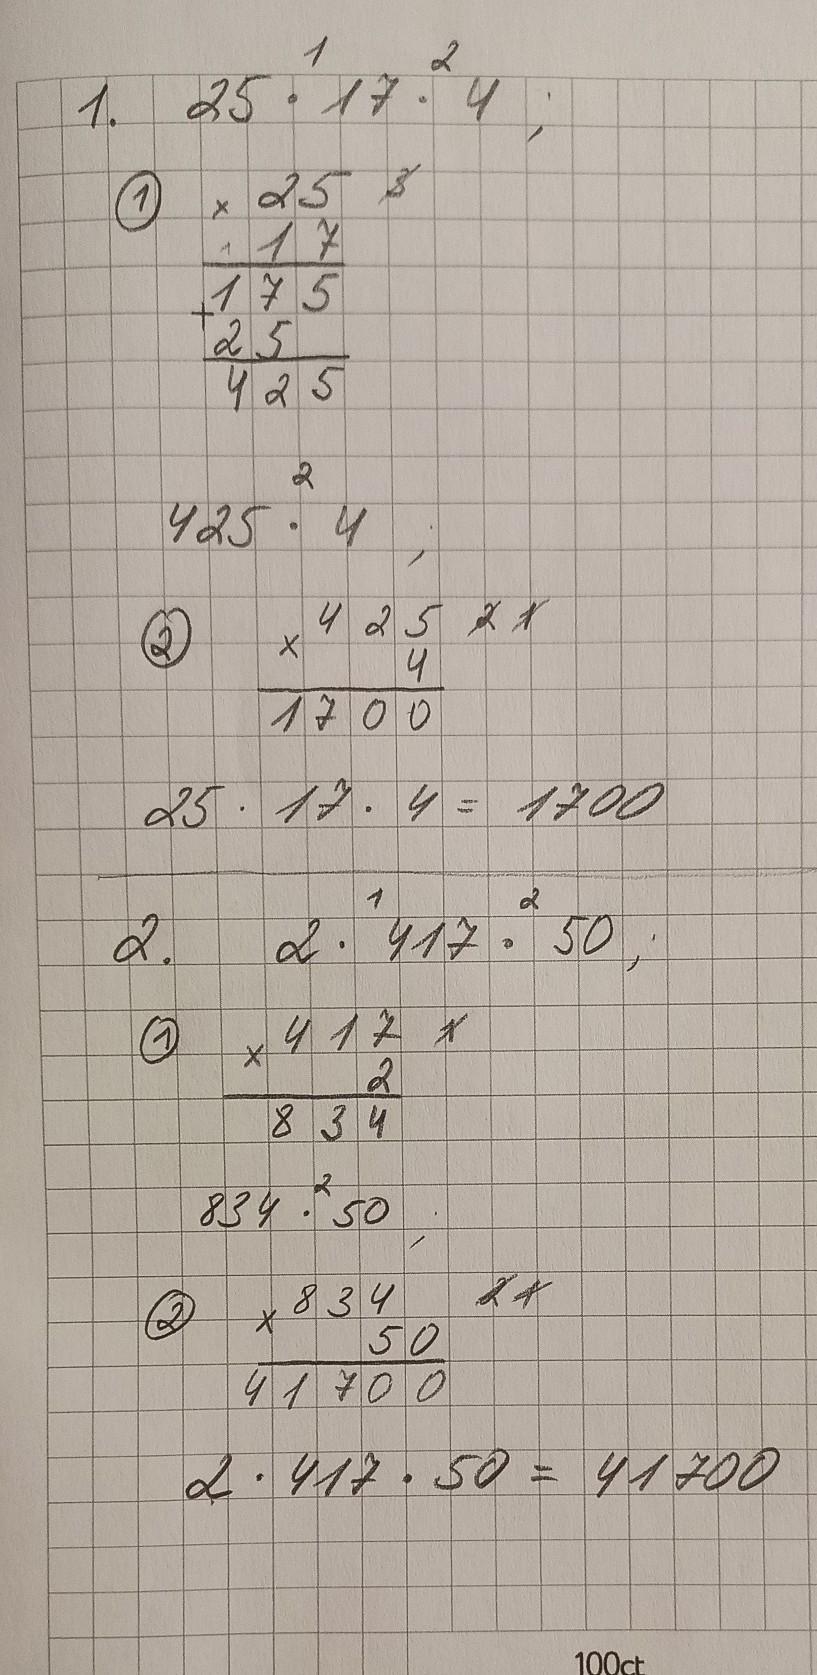 1 2
1. 25 · 17 · 4 ;
① × 25 3
17
175
+
25
425
2
425 · 4 ;
② × 425 2 1
4
1700
25 · 17 · 4 = 1700
1 2
2. 2 · 417 · 50 ;
① × 417 1
2
834
2
834 · 50 ;
② × 834 2 1
50
41700
2 · 417 · 50 = 41700
100ct